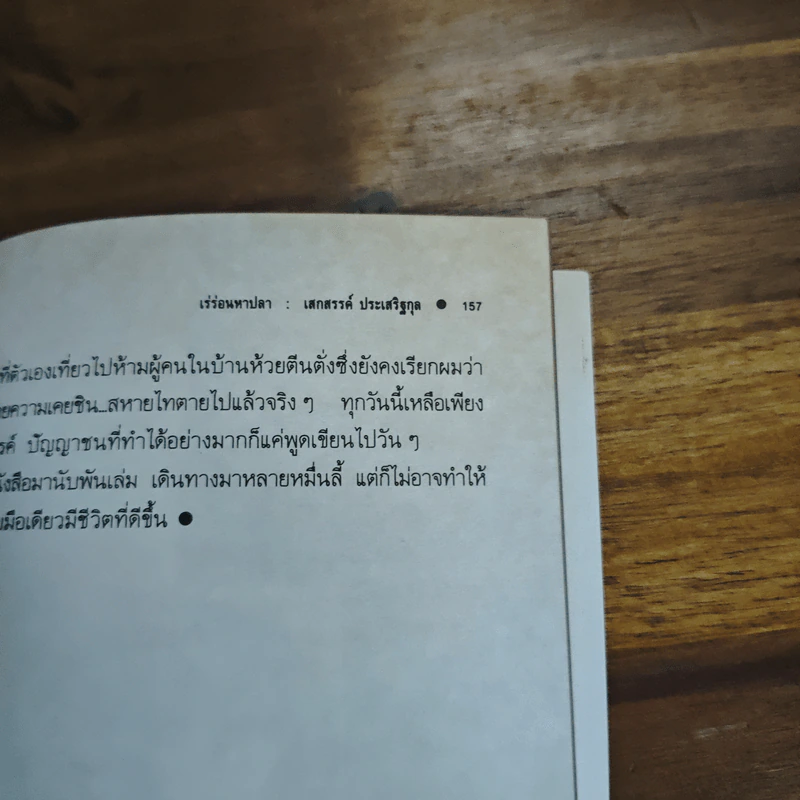 เร่ร่อนหาปลา : เสกสรรค์ ประเสริฐกุล ● 157
ที่ตัวเองเที่ยวไปห้ามผู้คนในบ้านห้วยตีนตั่งซึ่งยังคงเรียกผมว่า
ยความเคยชิน...สหายไทตายไปแล้วจริง ๆ ทุกวันนี้เหลือเพียง
รค์ ปัญญาชนที่ทำได้อย่างมากก็แค่พูดเขียนไปวัน ๆ
ังสือมานับพันเล่ม เดินทางมาหลายหมื่นลี้ แต่ก็ไม่อาจทำให้
มือเดียวมีชีวิตที่ดีขึ้น ●